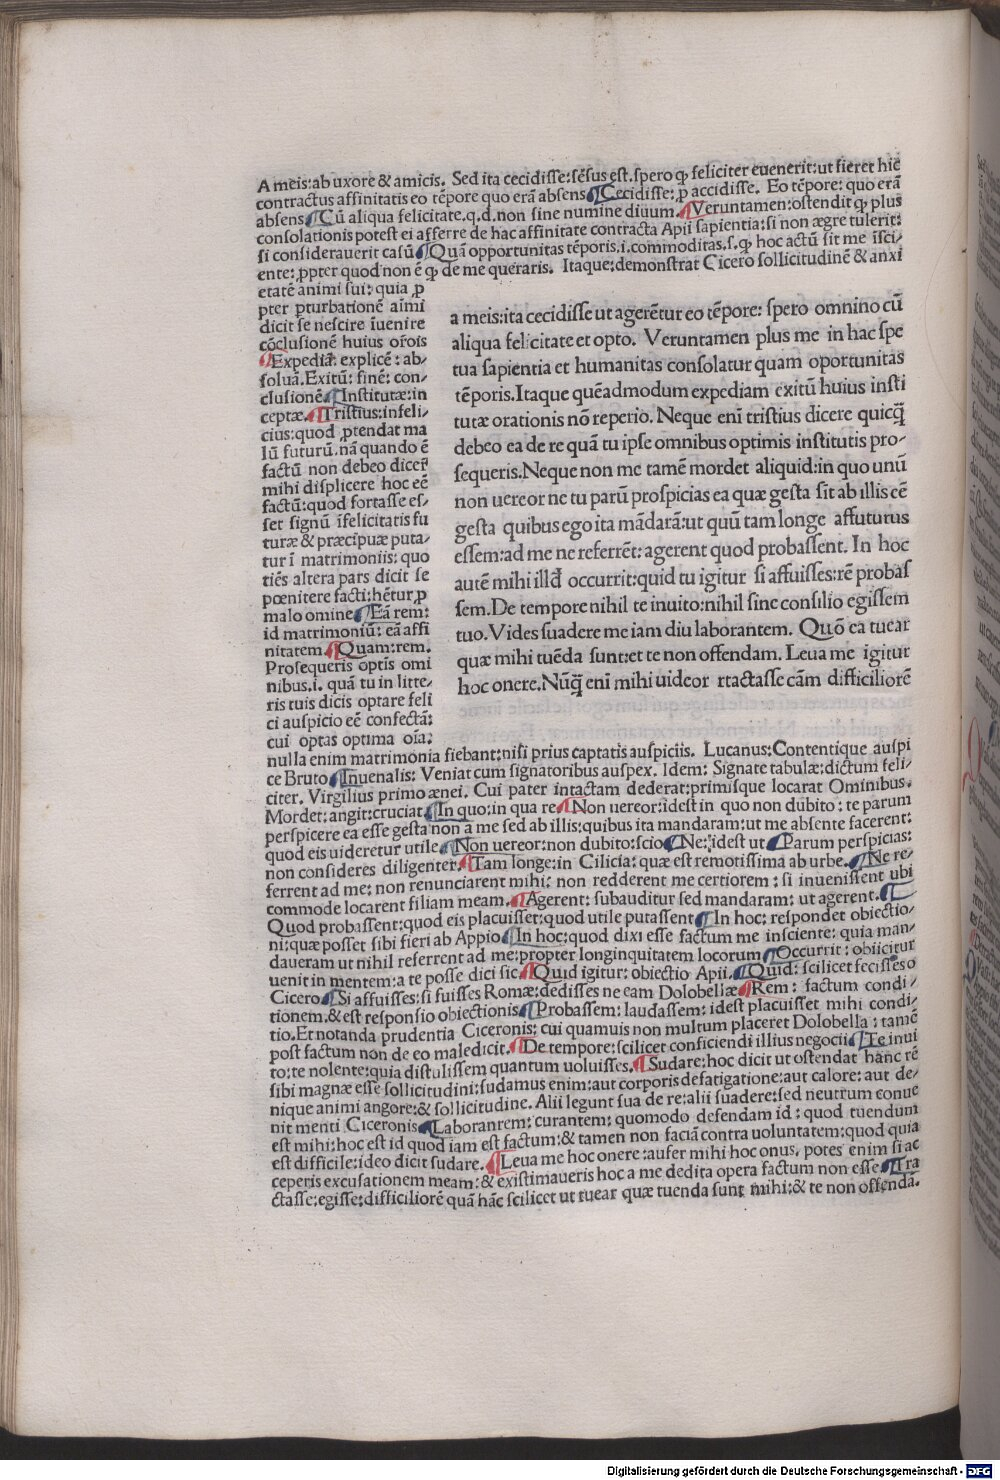 A meis: ab uxore & amicis. Sed ita cecidisse: sẽsus est. spero ꝙ feliciter euenerit: ut fieret hic
contractus affinitatis eo tẽpore quo erã absens ¶Cecidisse: ꝓ accidisse. Eo tẽpore: quo erã
absens ¶Cũ aliqua felicitate. q. d. non sine numine diuum. ¶Veruntamen: ostendit ꝙ plus
consolationis potest ei afferre de hac affinitate contracta Apii sapientia: si non ægre tulerit:
si considerauerit casũ ¶Quã opportunitas tẽporis. i. commoditas. s. ꝙ hoc actũ sit me ĩsci/
ente: ꝓpter quod non ẽ ꝙ de me queraris. Itaque: demonstrat Cicero sollicitudinẽ & anxi
etatẽ animi sui: quia ꝓ
pter ꝑturbationẽ aĩmi
dicit se nescire ĩuenire
cõclusionẽ huius orõis
¶Expediã: explicẽ: ab/
soluã. Exitũ: finẽ: con/
clusionẽ ¶Institutæ: in
ceptæ. ¶Tristius: infeli/
cius: quod ꝓtendat ma
lũ futurũ. nã quando ẽ
factũ non debeo dicer̃
mihi displicere hoc eẽ
factũ: quod fortasse es/
set signũ ĩfelicitatis fu
turæ & præcipuæ puta/
tur ĩ matrimoniis: quo
tiẽs altera pars dicit se
pœnitere facti: hẽtur ꝓ
malo omine ¶Eã rem:
id matrimoniũ: eã affi
nitatem. ¶Quam: rem.
Prosequeris optĩs omi
nibus. i. quã tu in litte/
ris tuis dicis optare feli
ci auspicio eẽ confectã:
cui optas optima oĩa:
a meis: ita cecidisse ut agerẽtur eo tẽpore: spero omnino cũ
aliqua felicitate et opto. Veruntamen plus me in hac spe
tua sapientia et humanitas consolatur quam oportunitas
tẽporis. Itaque quẽadmodum expediam exitũ huius insti
tutæ orationis nõ reperio. Neque enĩ tristius dicere quicq̃
debeo ea de re quã tu ipse omnibus optimis institutis pro/
sequeris. Neque non me tamẽ mordet aliquid: in quo unũ
non uereor ne tu parũ prospicias ea quæ gesta sit ab illis eẽ
gesta quibus ego ita mãdarã: ut quũ tam longe affuturus
essem: ad me ne referrẽt: agerent quod probassent. In hoc
autẽ mihi illd̃ occurrit: quid tu igitur si affuisses: rẽ probas
sem. De tempore nihil te inuito: nihil sine consilio egissem
tuo. Vides suadere me iam diu laborantem. Quõ ea tuear
quæ mihi tuẽda sunt: et te non offendam. Leua me igitur
hoc onere. Nũq̃ enĩ mihi uideor rtactasse cãm difficiliorẽ
nulla enim matrimonia fiebant: nisi prius captatis auspiciis. Lucanus: Contentique auspi
ce Bruto ¶Iuuenalis: Veniat cum signatoribus auspex. Idem: Signate tabulæ: dictum feli/
citer. Virgilius primo ænei. Cui pater intactam dederat: primisque locarat Ominibus.
Mordet: angit: cruciat ¶In quo: in qua re ¶Non uereor: idest in quo non dubito: te parum
perspicere ea esse gesta non a me sed ab illis: quibus ita mandaram: ut me absente facerent:
quod eis uideretur utile ¶Non uereor: non dubito: scio ¶Ne: idest ut ¶Parum perspicias:
non consideres diligenter. ¶Tam longe: in Cilicia: quæ est remotissima ab urbe. ¶Ne re/
ferrent ad me: non renunciarent mihi: non redderent me certiorem: si inuenissent ubi
commode locarent filiam meam. ¶Agerent: subauditur sed mandaram: ut agerent. ¶
Quod probassent: quod eis placuisset: quod utile putassent ¶In hoc: respondet obiectio/
ni: quæ posset sibi fieri ab Appio ¶In hoc: quod dixi esse factum me insciente: quia man/
daueram ut nihil referrent ad me: propter longinquitatem locorum ¶Occurrit: obiicitur
uenit in mentem: a te posse dici sic. ¶Quid igitur: obiectio Apii. ¶Quid: scilicet fecisses o
Cicero ¶Si affuisses: si fuisses Romæ: dedisses ne eam Dolobellæ ¶Rem: factum condi/
tionem. & est responsio obiectionis ¶Probassem: laudassem: idest placuisset mihi condi/
tio. Et notanda prudentia Ciceronis: cui quamuis non multum placeret Dolobella: tamẽ
post factum non de eo maledicit. ¶De tempore: scilicet conficiendi illius negocii ¶Te inui
to: te nolente: quia distulissem quantum uoluisses. ¶Sudare: hoc dicit ut ostendat hanc rẽ
sibi magnæ esse sollicitudini: sudamus enim: aut corporis defatigatione: aut calore: aut de/
nique animi angore: & sollicitudine. Alii legunt sua de re: alii suadere: sed neutrum conue
nit menti Ciceronis ¶Laboranrem: curantem: quomodo defendam id: quod tuendum
est mihi: hoc est id quod iam est factum: & tamen non faciã contra uoluntatem: quod quia
est difficile: ideo dicit sudare. ¶Leua me hoc onere: aufer mihi hoc onus. potes enim si ac
ceperis excusationem meam: & existimaueris hoc a me dedita opera factum non esse ¶Tra
ctasse: egisse: difficiliorẽ quã hãc scilicet ut tuear quæ tuenda sunt mihi: & te non offendã.
Digitalisierung gefördert durch die Deutsche Forschungsgemeinschaft - DFG